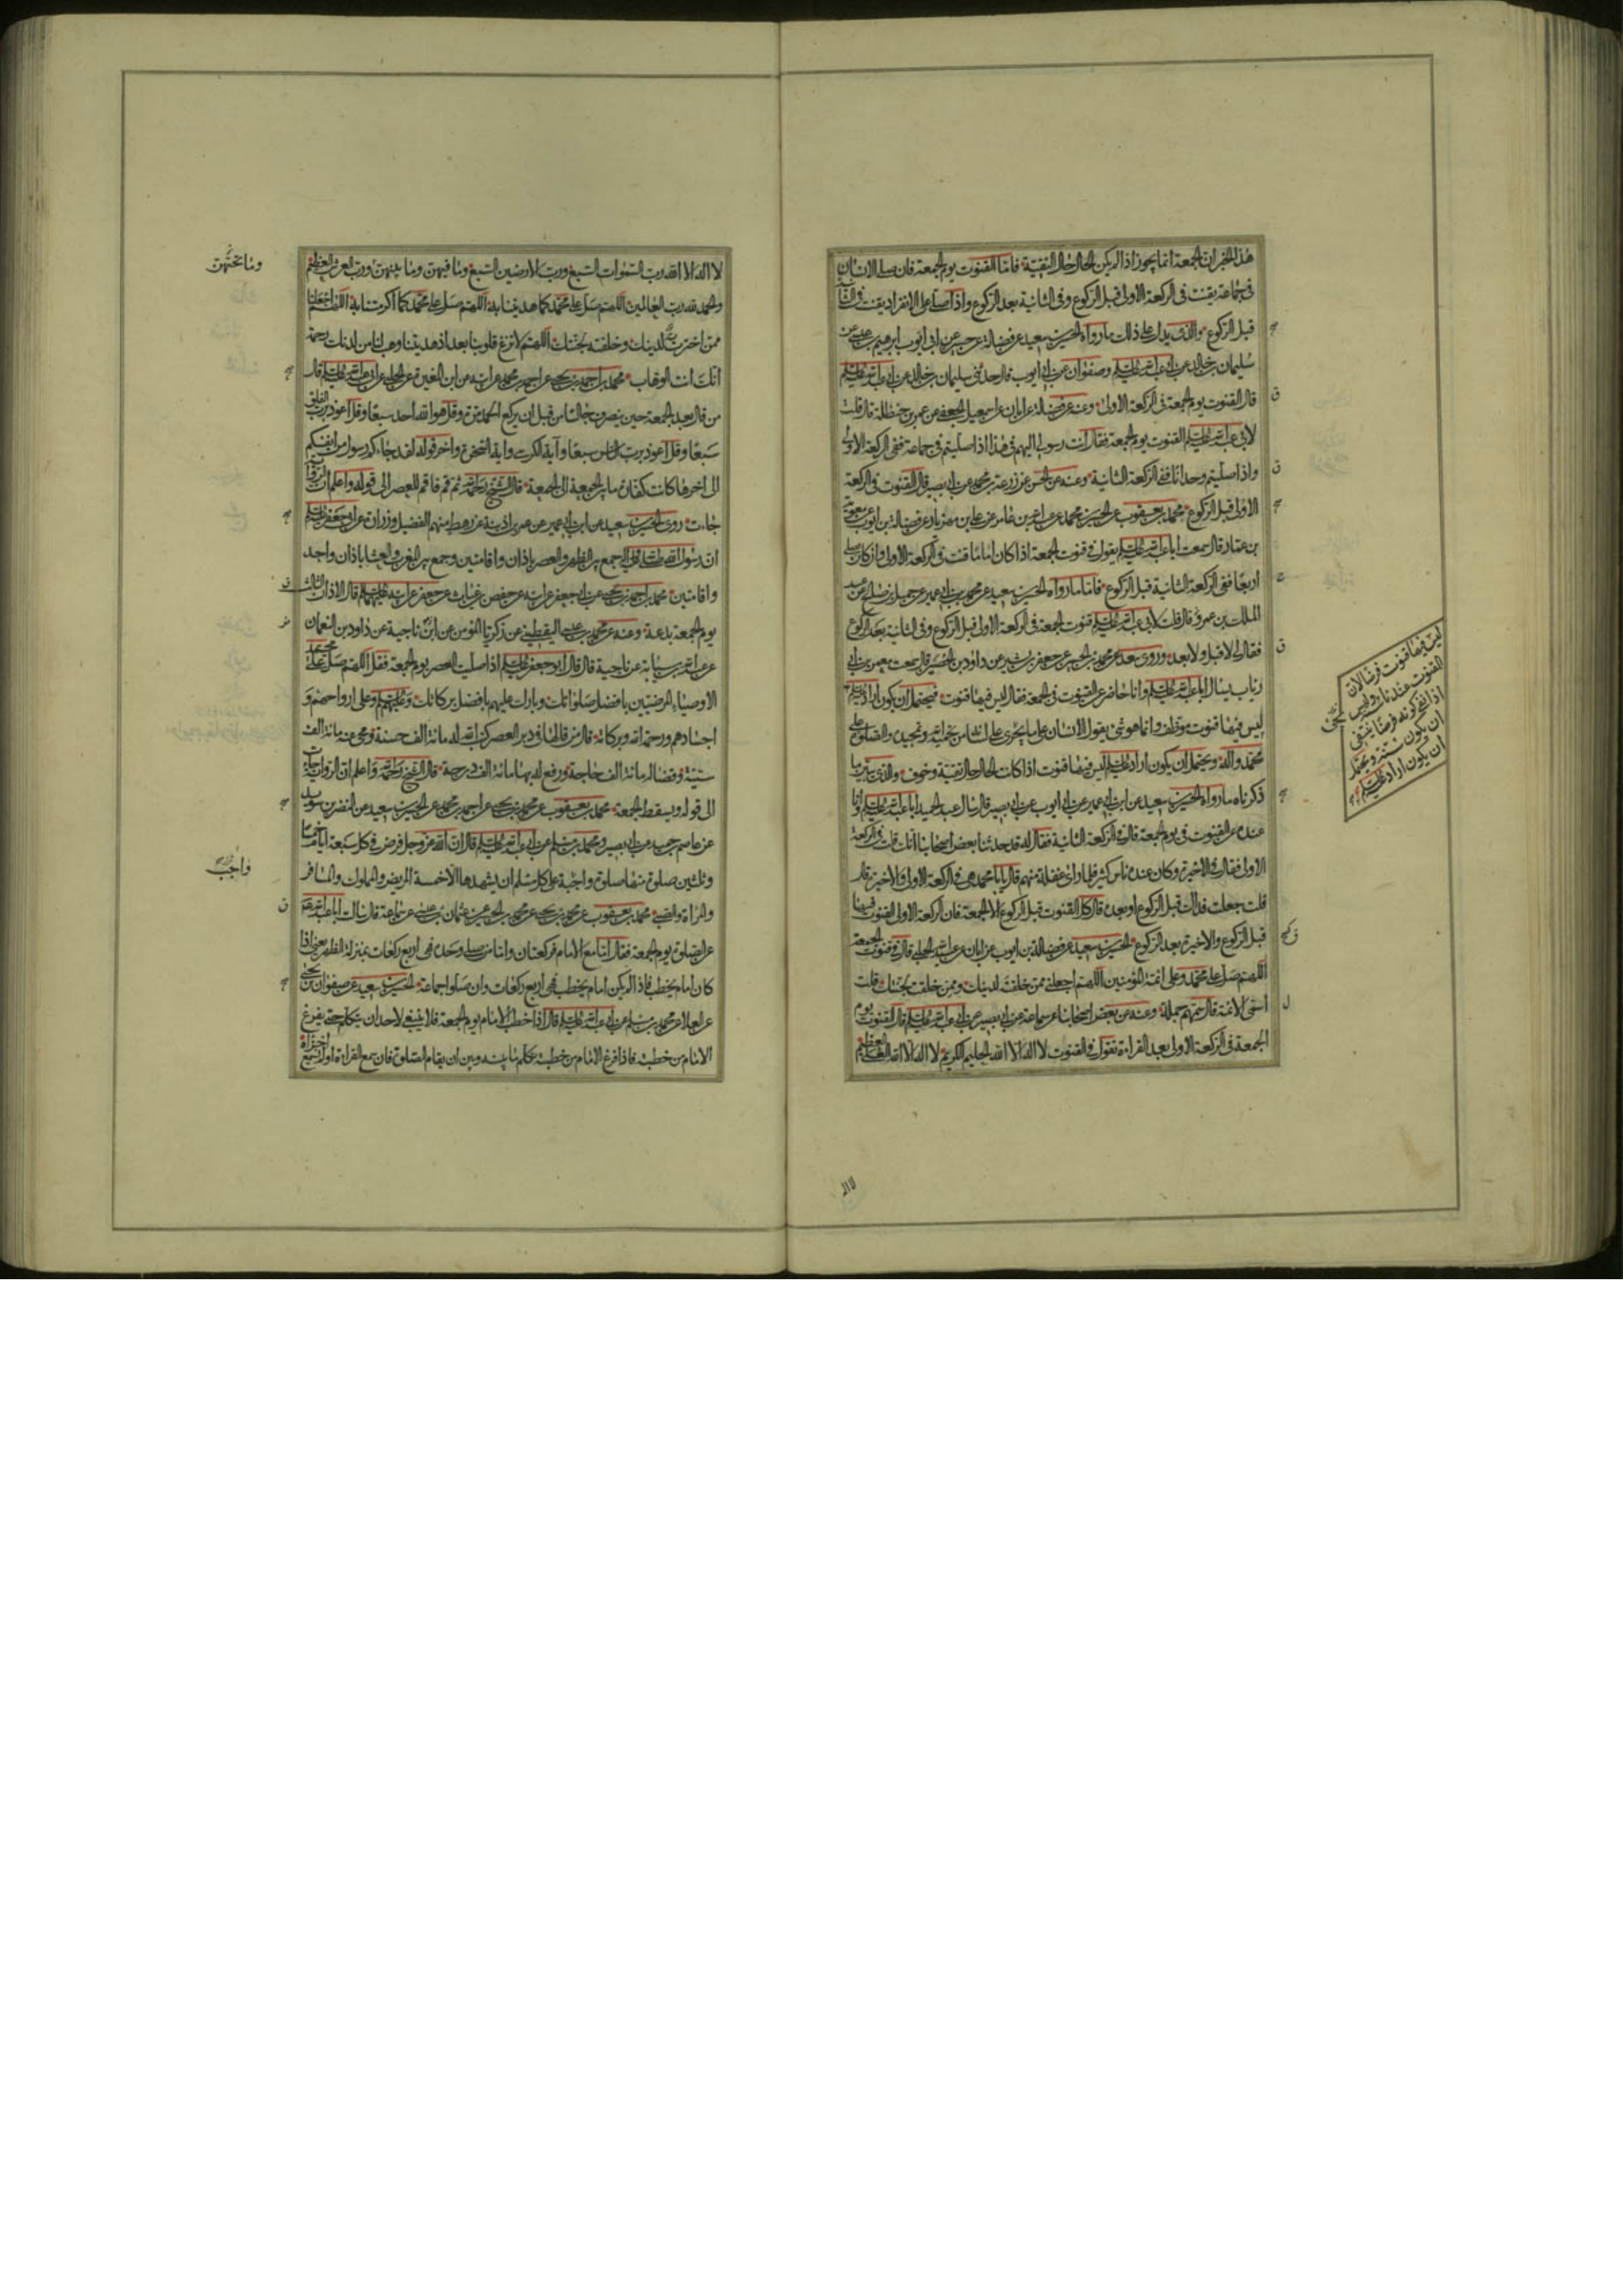 هذا الخبر ان الجمعة انما يجوز اذا لم يكن الحال حال التقية فاما القنوت يوم الجمعة فان صلى الانسان
فى جماعة يقنت فى الركعة الاولى قبل الركوع وفى الثانية بعد الركوع واذا صلى على الانفراد يقنت فى الثانية
قبل الركوع والذى يدل على ذلك ما رواه الحسين بن سعيد عن فضالة عن حسين عن ابى ايوب ابرهيم بن عيسى عن
سليمان بن خالد عن ابى عبد الله عليه السلم وصفوان عن ابى ايوب قال حدثنى سليمان بن خالد عن ابى عبد الله عليه السلم
قال القنوت يوم الجمعة فى الركعة الاولى وعنه عن فضالة عن ابان عن اسمعيل الجعفى عن عمر بن حنظلة قال قلت
لابى عبد الله عليه السلم القنوت يوم الجمعة فقال انت رسولى اليهم فى هذا اذا صليتم فى جماعة ففى الركعة الاولى
واذا صليتم وحدانا ففى الركعة الثانية وعنه عن الحسن عن زرعة بن محمد عن ابى بصير قال القنوت فى الركعة
الاولى قبل الركوع محمد بن يعقوب عن الحسين بن محمد عن عبد الله بن عامر عن على بن مهزيار عن فضالة بن ايوب عن معوية
بن عمار قال سمعت ابا عبد الله عليه السلم يقول فى قنوت الجمعة اذا كان اماما قنت فى الركعة الاولى وان كان يصلى
اربعا ففى الركعة الثانية قبل الركوع فاما ما رواه الحسين بن سعيد عن محمد بن ابى عمير عن جميل بن صالح عن عبد
الملك بن عمرو قال قلت لابى عبد الله عليه السلم قنوت الجمعة فى الركعة الاولى قبل الركوع وفى الثانية بعد الركوع
فقال لى لا قبل ولا بعد وروى سعد عن محمد بن الحسين عن جعفر بن بشير عن داود بن الحصين قال سمعت معمر بن ابى
رئاب يسال ابا عبد الله عليه السلم وانا حاضر عن القنوت فى الجمعة فقال ليس فيها قنوت فيحتمل ان يكون اراد عليه السلم
ليس فيها قنوت موظف وانما هو شئ يقول الانسان على ما يجرى على لسانه من تحميد الله وتمجيده والصلوة على
محمد واله ويحتمل ان يكون اراد عليه السلم ليس فيها قنوت اذا كانت الحال حال تقية وخوف والذى يبين ما
ذكرناه ما رواه الحسين بن سعيد عن ابن ابى عمير عن ابى ايوب عن ابى بصير قال سال عبد الحميد ابا عبد الله عليه السلم وانا
عنده عن القنوت فى يوم الجمعة قال فى الركعة الثانية فقال له قد حدثنا بعض اصحابنا انك قلت فى الركعة
الاولى فقال فى الاخيرة وكان عنده ناس كثير فلما راى غفلة منهم قال يا با محمد هى فى الركعة الاولى والاخيرة قال
قلت جعلت فداك قبل الركوع او بعده قال كل القنوت قبل الركوع الا الجمعة فان الركعة الاولى القنوت فيها
قبل الركوع والاخيرة بعد الركوع الحسين بن سعيد عن فضالة بن ايوب عن ابان عن عبيد الله الحلبى قال فى قنوت الجمعة
اللهم صل على محمد وعلى ائمة المؤمنين اللهم اجعلنى ممن خلقت لدينك وممن خلقت لجنتك قلت
اسمى الائمة قال سمهم جملة وعنه عن بعض اصحابنا عن سماعة عن ابى بصير عن ابى عبد الله عليه السلم قال القنوت يوم
الجمعة فى الركعة الاولى بعد القراءة تقول فى القنوت لا اله الا الله الحليم الكريم لا اله الا الله العلى العظيم
ليس فيها قنوت فرضا لان
القنوت عندنا سنة وليس يجئ
اذا نفى كونه فرضا ينتفى
ان يكون سنة ويحتمل
ان يكون اراد عليه السلم
لا اله
لا اله الا الله رب السموات السبع ورب الارضين السبع وما فيهن وما بينهن ورب العرش العظيم
وما تحتهن
والحمد لله رب العالمين اللهم صل على محمد كما هديتنا به اللهم صل على محمد كما اكرمتنا به اللهم اجعلنا
ممن اخترته لدينك وخلقته لجنتك اللهم لا تزغ قلوبنا بعد اذ هديتنا وهب لنا من لدنك رحمة
انك انت الوهاب محمد بن احمد بن يحيى عن احمد بن محمد عن ابيه عن ابن المغيرة عن الحلبى عن ابى عبد الله عليه السلم قال
من قال بعد الجمعة حين ينصرف جالسا من قبل ان يركع الحمد مرة وقل هو الله احد سبعا وقل اعوذ برب الفلق
سبعا وقل اعوذ برب الناس سبعا وآية الكرسى واية السخرة واخر قوله لقد جاءكم رسول من انفسكم
الى اخرها كانت كفارة ما بين الجمعة الى الجمعة قال الشيخ رحمه الله ثم قم فاقم للعصر الى قوله واعلم ان الرواية
جاءت روى الحسين بن سعيد عن ابن ابى عمير عن عمر بن اذينة عن رهط منهم الفضيل وزرارة عن ابى جعفر عليه السلم
ان رسول الله صلى الله عليه وآله جمع بين الظهر والعصر باذان واقامتين وجمع بين المغرب والعشاء باذان واحد
واقامتين محمد بن احمد بن يحيى عن ابى جعفر عن ابيه عن حفص بن غياث عن جعفر عن ابيه عليهما السلم قال الاذان الثالث
يوم الجمعة بدعة وعنه عن محمد بن عيسى اليقطينى عن زكريا المؤمن عن ابن ناجية عن داود بن النعمان
عن عبد الله بن سيابة عن ناجية قال قال ابو جعفر عليه السلم اذا صليت العصر يوم الجمعة فقل اللهم صل على محمد
الاوصياء المرضيين بافضل صلواتك وبارك عليهم بافضل بركاتك وعليهم السلم وعلى ارواحهم و
اجسادهم ورحمة الله وبركاته قال من قالها فى دبر العصر كتب الله له مائة الف حسنة ومحى عنه مائة الف
سيئة وقضى له مائة الف حاجة ورفع له بها مائة الف درجة قال الشيخ رحمه الله واعلم ان الرواية جاءت
الى قوله ويسقط الجمعة محمد بن يعقوب عن محمد بن يحيى عن احمد بن محمد عن الحسين بن سعيد عن النضر بن سويد
عن عاصم بن حميد عن ابى بصير ومحمد بن مسلم عن ابى عبد الله عليه السلم قال ان الله عز وجل فرض فى كل سبعة ايام خمسا
وثلثين صلوة منها صلوة واجبة على كل مسلم ان يشهدها الا خمسة المريض والمملوك والمسافر
واجب
والمراة والصبى محمد بن يعقوب عن محمد بن يحيى عن محمد بن الحسين عن عثمان بن عيسى عن سماعة قال سالت ابا عبد الله
عن الصلوة يوم الجمعة فقال اما مع الامام فركعتان واما من صلى وحده فهى اربع ركعات بمنزلة الظهر يعنى اذا
كان امام يخطب فاذا لم يكن امام يخطب فهى اربع ركعات وان صلوا جماعة الحسين بن سعيد عن صفوان بن يحيى
عن العلا عن محمد بن مسلم عن ابى عبد الله عليه السلم قال اذا خطب الامام يوم الجمعة فلا ينبغى لاحد ان يتكلم حتى يفرغ
الامام من خطبته فاذا فرغ الامام من خطبته تكلم ما بينه وبين ان يقام الصلوة فان سمع القراءة او لم يسمع اجزاه